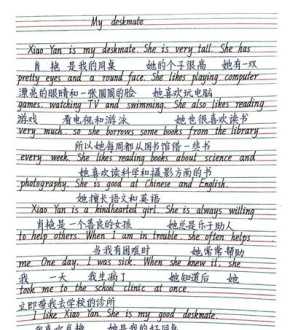 My deskmate
Xiao Yan is my deskmate. She is very tall. She has
肖艳是我的同桌 她的个子很高 她有一双
pretty eyes and a round face. She likes playing computer
漂亮的眼睛和一张圆圆的脸 她喜欢玩电脑
games, watching TV and swimming. She also likes reading
游戏 看电视和游泳 她也很喜欢读书
very much. so she borrows some books from the library
所以她每周都从图书馆借一些书
every week. She likes reading books about science and
她喜欢读科学和摄影方面的书
photography. She is good at Chinese and English.
她擅长语文和英语
Xiao Yan is a kindhearted girl. She is always willing
肖艳是一个善良的女孩 她总是乐于助人
to help others. When I am in trouble. she often helps
当我有困难时 她常常帮助
me. One day, I was sick. When she knew it, she
我 一天 我生病了 她知道后 她
took me to the school clinic at once.
立即带我去学校的诊所
I like Xiao Yan. She is my good deskmate.
我喜欢肖艳 她是我的好同桌